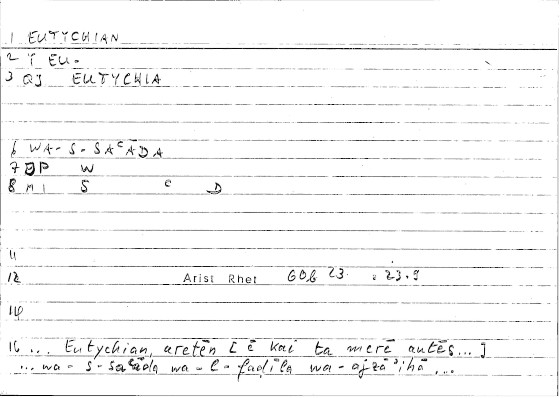 1 EUTYCHIAN
2 T EU-
3 QJ EUTYCHIA
6 WA-S-SAᶜĀDA
7 DP W
8 MI S ᶜ D
11
12 Arist Rhet 60b 23 . 23.9
14
16 ... Eutychian, aretēn [ē kai ta merē autēs...]
...wa-s-saᶜāda wa-l-faḍīla wa-ajzāʾihā...